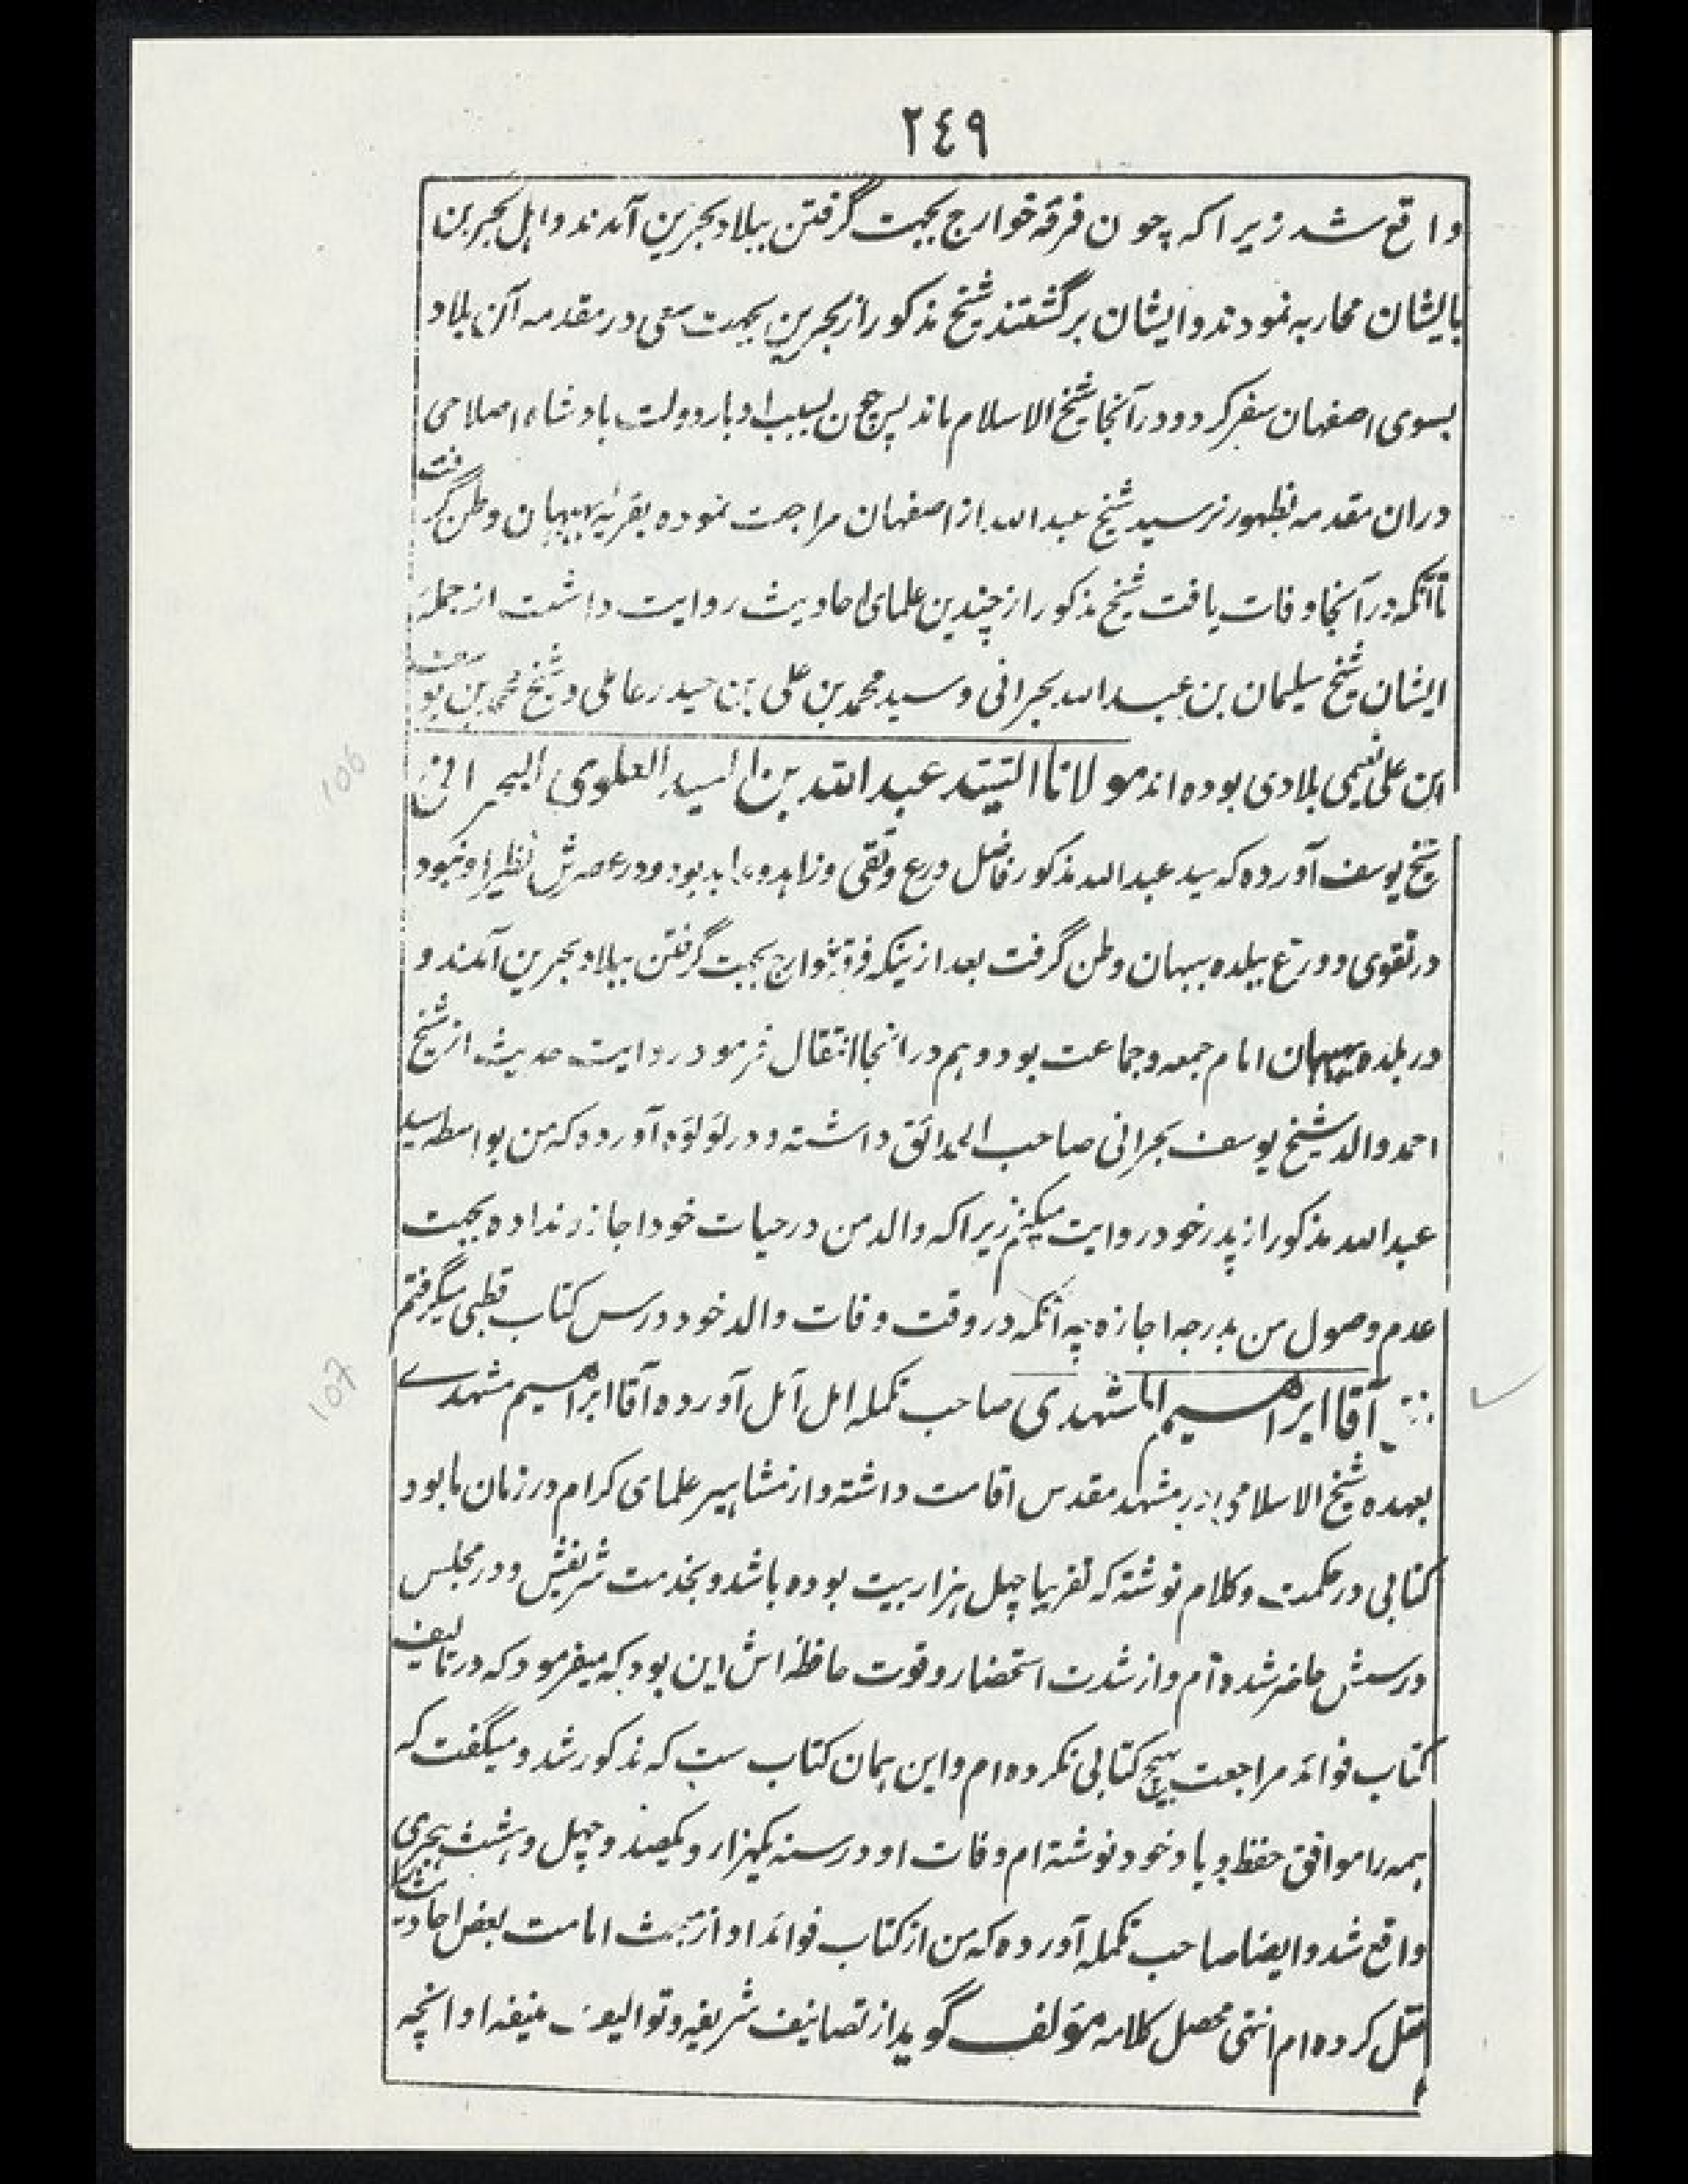 ٢٤٩
واقع شد زیرا که چون فرقهٔ خوارج بجهت گرفتن ببلاد بحرین آمدند و اہل بحرین
بایشان محاربه نمودند و ایشان برگشتند شیخ مذکور از بحرین بجهت سعی در مقدمه آن بلاد
بسوی اصفهان سفر کرد و در آنجا شیخ الاسلام ماند پس چون بسبب ادبار دولت بادشاه اصلاحی
دران مقدمه بظهور نرسید شیخ عبدالله از اصفهان مراجعت نموده بقریهٔ بهبهان وطن گرفت
تا آنکه در آنجا وفات یافت شیخ مذکور از چندین علمای احادیث روایت داشت از جملهٔ
ایشان شیخ سلیمان بن عبدالله بحرانی و سید محمد بن علی بن حیدر عاملی و شیخ محمد بن یوسف
ابن علی نعیمی بلادی بوده اند مولانا السید عبد الله بن السید العلوی البحرانی
شیخ یوسف آورده که سید عبدالله مذکور فاضل ورع و تقی و زاہد و عابد بود و در عصرش نظیر او نبود
در تقوی و ورع ببلده بهبهان وطن گرفت بعد ازینکه فرقه خوارج بجهت گرفتن ببلاد بحرین آمدند و
در بلده بهبهان امام جمعه و جماعت بود و ہم در انجا انتقال فرمود روایت حدیث از شیخ
احمد والد شیخ یوسف بحرانی صاحب الحدائق داشته و در لؤلؤه آورده که من بواسطه سید
عبدالله مذکور از پدر خود روایت میکنم زیرا که والد من در حیات خود اجازه نداده بجهت
عدم وصول من بدرجه اجازه چه آنکه در وقت وفات والد خود درس کتاب قطبی میگرفتم
آقا ابراهیم المشهدی صاحب تکمله امل آمل آورده آقا ابراهیم مشهدے
بعهده شیخ الاسلامی در مشهد مقدس اقامت داشته و از مشاہیر علمای کرام در زمان ما بود
کتابی در حکمت و کلام نوشته که تقریبا چهل ہزار بیت بوده باشد و بخدمت شریفش و در مجلس
درسش حاضر شده ام و از شدت استحضار و قوت حافظه اش این بود که میفرمود که در تالیف
کتاب فوائد مراجعت بہیچ کتابی نکرده ام و این ہمان کتاب ست که مذکور شد و میگفت که
ہمه را موافق حفظ و یاد خود نوشته ام وفات او در سنه یکہزار و یکصد و چہل و ہشت ہجری
واقع شد و ایضا صاحب تکمله آورده که من از کتاب فوائد او از مبحث امامت بعض احادیث را
نقل کرده ام انتہی محصل کلامه مؤلف گوید از تصانیف شریفه و توالیف منیفه او انچه
106
107